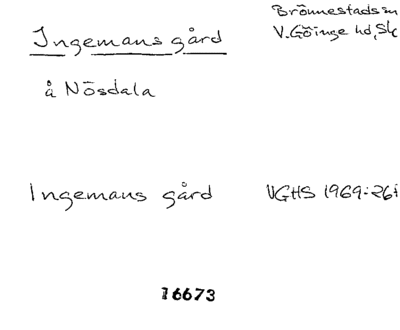 Ingemans gård
Brönnestads sn
V. Göinge hd, Sk
å Nösdala
Ingemans gård
VGHS 1969: 26
16673